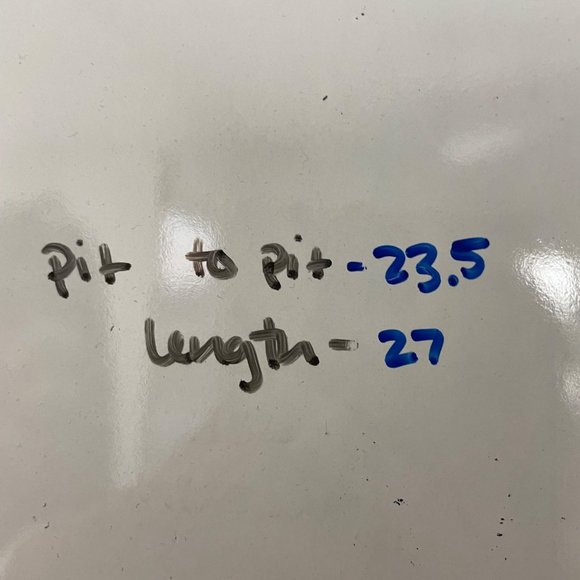 pit to pit - 23.5
length - 27